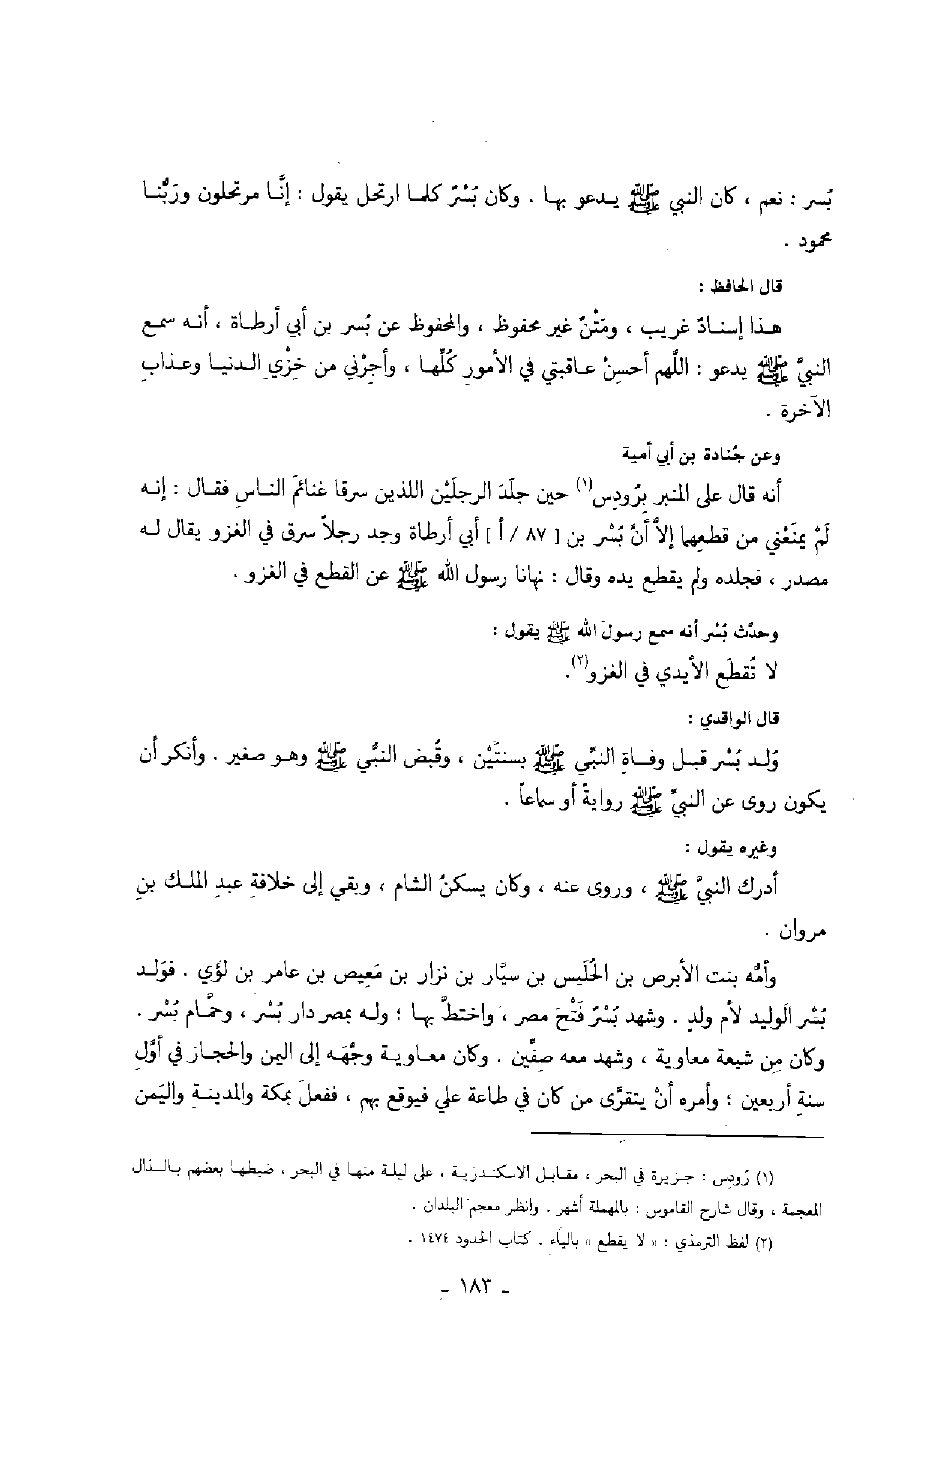 بُسر : نعم ، كان النبي ﷺ يـدعو بهـا . وكان بُسْرٌ كلمـا ارتحل يقول : إنَّـا مرتحلون وربُّنـا
محمود .
قال الحافظ :
هـذا إسنـادٌ غريب ، ومَتْنٌ غير محفوظ ، والمحفوظ عن بُسر بن أبي أرطـاة ، أنـه سمع
النبيَّ ﷺ يدعو : اللّهم أحسِنْ عـاقبتي في الأمورِ كلِّهـا ، وأجِرْني من خِزْيِ الـدنيـا وعـذابِ
الآخرة .
وعن جُنادة بن أبي أمية
أنه قال على المنبر برُودِس(١) حين جلَدَ الرجلَيْن اللذين سرقا غنائمَ النـاسِ فقـال : إنـه
لَمْ يمنَعْني من قطعِهما إلاَّ أنَّ بُسْر بن [ ٨٧ / أ ] أبي أرطاة وجد رجلاً سرق في الغزو يقال لـه
مصدر ، فجلده ولم يقطع يده وقال : نهانا رسول الله ﷺ عن القطع في الغزو .
وحدَّث بُسْر أنه سمع رسولَ الله ﷺ يقول :
لا تُقطَع الأيدي في الغزو(٢).
قال الواقدي :
وُلـد بُسْر قبـل وفـاةِ النبِّي ﷺ بسنتَيْن ، وقُبض النبُّي ﷺ وهـو صغير . وأنكر أن
يكون روى عن النبيِّ ﷺ روايةً أو سماعاً .
وغيره يقول :
أدرك النبيَّ ﷺ ، وروى عنه ، وكان يسكنُ الشام ، وبقي إلى خلافةِ عبدِ الملـك بنِ
مروان .
وأمُّه بنت الأبرص بن الحُلَيس بن سيَّار بن نزار بن مَعِيص بن عامر بن لؤي . فوَلـد
بُسْر الوليد لأم ولدٍ . وشهد بُسْرٌ فَتْحَ مصر ، واختطَّ بهـا ؛ ولـه بمصر دار بُسْر ، وحمَّام بُسْر .
وكان مِن شيعة معاوية ، وشهد معه صِفِّين . وكان معـاويـة وجَّهَه إلى اليمن والحجاز في أوَّلِ
سنةِ أربعين ؛ وأمره أنْ يتقرَّى من كان في طاعة علي فيوقع بهم ، ففعلَ بمكة والمدينـةِ واليَمن
(١) رُودِس : جـزيرة في البحر ، مقـابل الاسكنـدريـة ، على ليلة منهـا في البحر ، ضبطهـا بعضهم بـالـذال
المعجمة ، وقال شارح القاموس : بالمهملة أشهر . وانظر معجم البلدان .
(٢) لفظ الترمذي : « لا يقطع » بالياء . كتاب الحدود ١٤٧٤ .
ـ ١٨٣ ـ